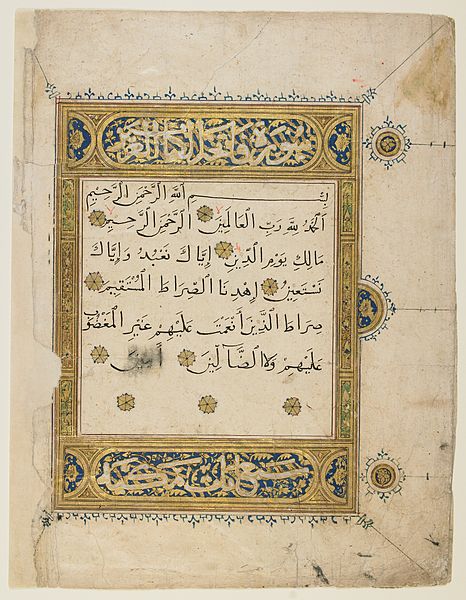 سورة فاتحة الكتاب
بِسْمِ اللَّهِ الرَّحْمَنِ الرَّحِيمِ
الْحَمْدُ لِلَّهِ رَبِّ الْعَالَمِينَ الرَّحْمَنِ الرَّحِيمِ
مَالِكِ يَوْمِ الدِّينِ إِيَّاكَ نَعْبُدُ وَإِيَّاكَ
نَسْتَعِينُ اِهْدِنَا الصِّرَاطَ الْمُسْتَقِيمَ
صِرَاطَ الَّذِينَ أَنْعَمْتَ عَلَيْهِمْ غَيْرِ الْمَغْضُوبِ
عَلَيْهِمْ وَلَا الضَّالِّينَ آمين